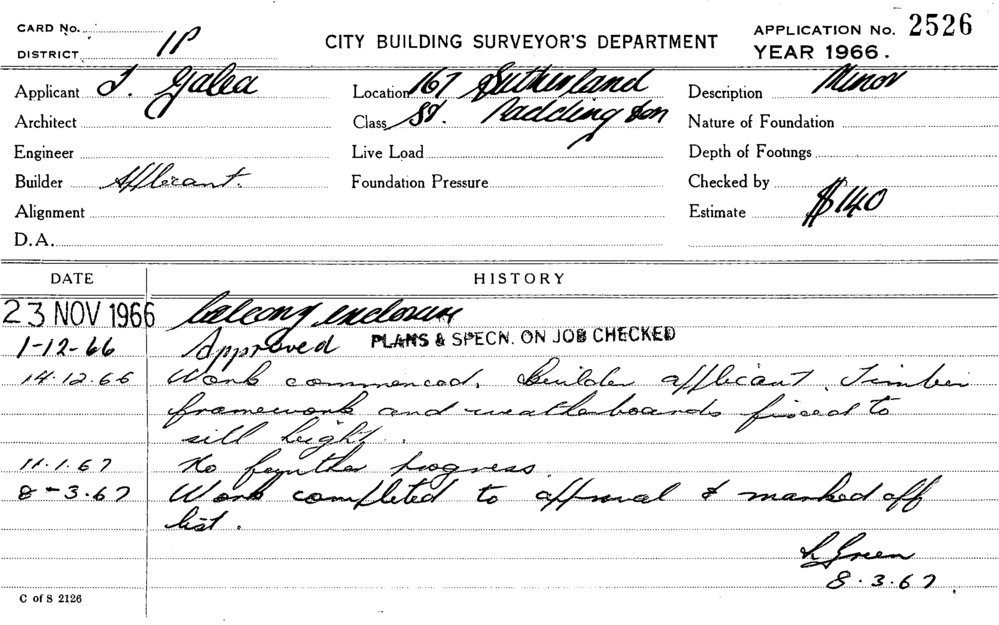 CARD No.
DISTRICT 1P
CITY BUILDING SURVEYOR'S DEPARTMENT
APPLICATION No. 2526
YEAR 1966.
Applicant J. Galea
Location 167 Sutherland
Description Minor
Architect
Class St. Paddington
Nature of Foundation
Engineer
Live Load
Depth of Footings
Builder Applicant.
Foundation Pressure
Checked by
Alignment
Estimate $140
D.A.
DATE HISTORY
23 NOV 1966 balcony enclosure
1-12-66 Approved PLANS & SPECN. ON JOB CHECKED
14.12.66 Work commenced. Builder applicant. Timber
framework and weatherboards fixed to
sill height.
11.1.67 No further progress.
8-3.67 Work completed to approval & marked off
list.
Green
8.3.67.
C of S 2126